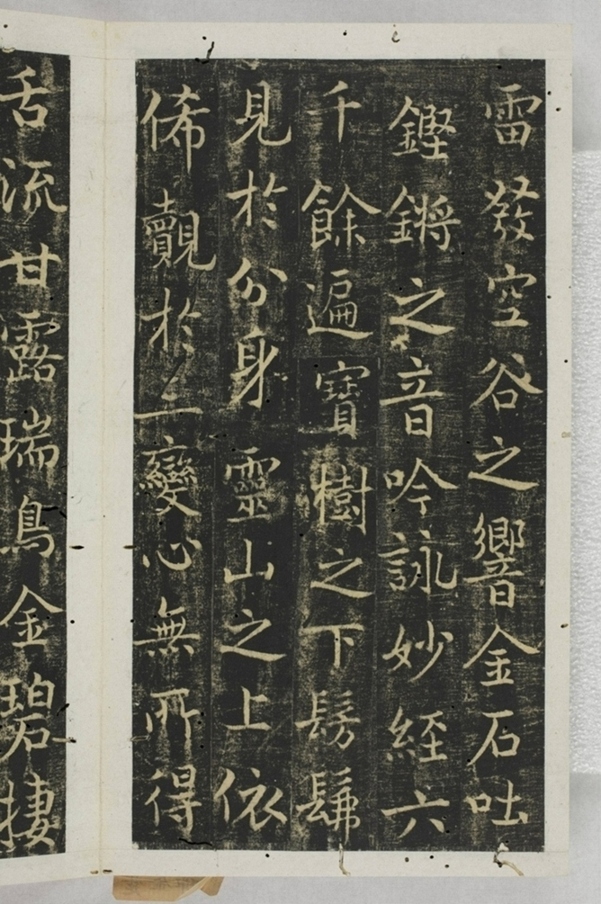 雷發空谷之響金石吐
鏗鏘之音吟詠妙經六
千餘遍寶樹之下髣髴
見於分身靈山之上依
俙覿於三變心無所得
舌流甘露瑞鳥金碧捿